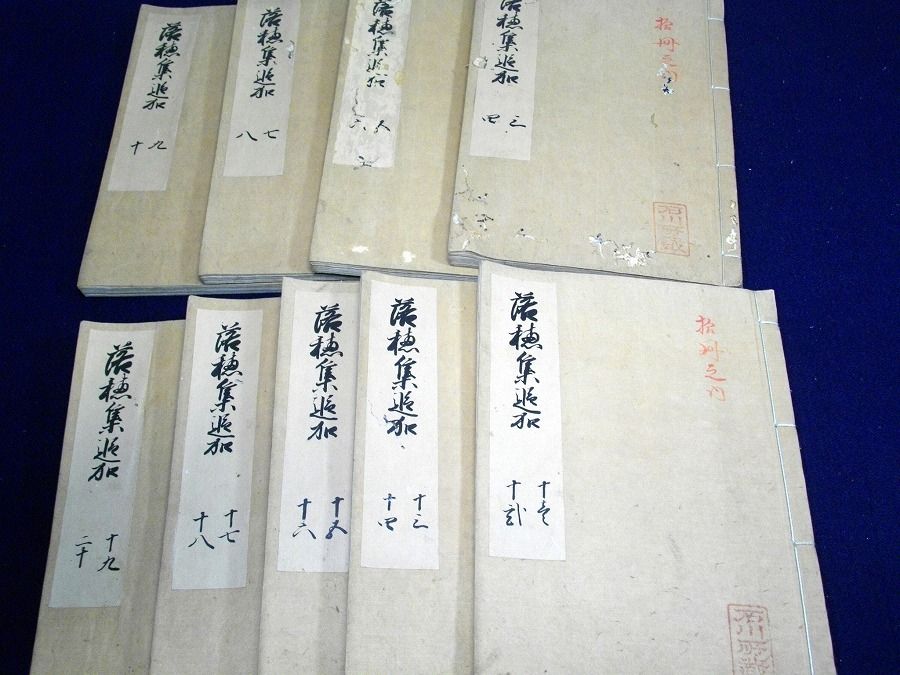 落穂集追加
三
四
拾冊之内
落穂集追加
五
六
落穂集追加
七
八
落穂集追加
九
十
落穂集追加
十壱
十弐
拾冊之内
落穂集追加
十三
十四
落穂集追加
十五
十六
落穂集追加
十七
十八
落穂集追加
十九
二十